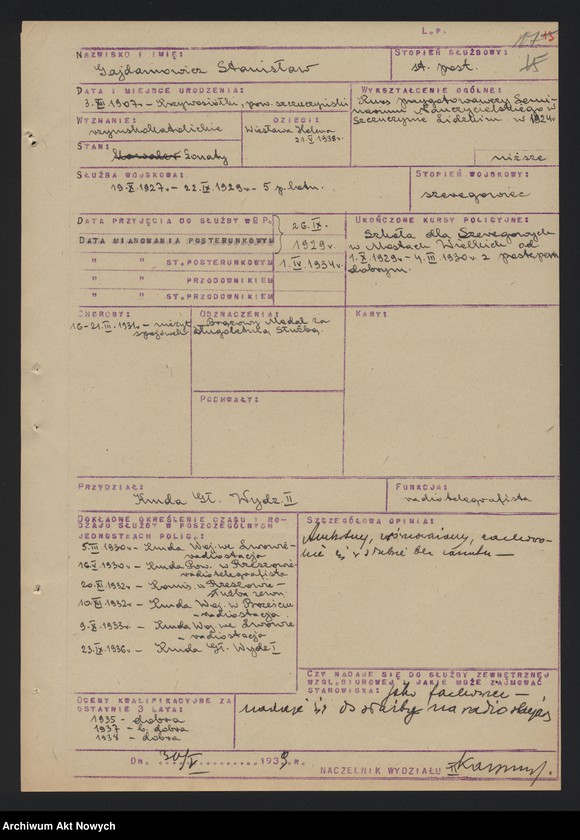 L.P.
15
NAZWISKO I IMIĘ:
Gajdamowicz Stanisław
STOPIEŃ SŁUŻBOWY:
st. post.
DATA I MIEJSCE URODZENIA:
3.XII 1907r – Krzywosiółki, pow. szczuczyński
WYKSZTAŁCENIE OGÓLNE:
Kurs przygotowawczy Semi-
narium Nauczycielskiego w
Szczuczynie Lidzkim w 1924r
niższe
WYZNANIE:
rzymskokatolickie
DZIECI:
Wiesława Helena
21.V.1938r.
STAN:
Kawaler żonaty
SŁUŻBA WOJSKOWA:
19.X.1927r. – 22.IX.1929r – 5 p. lotn.
STOPIEŃ WOJSKOWY:
szeregowiec
DATA PRZYJĘCIA DO SŁUŻBY W P.P.
26.IX.
DATA MIANOWANIA POSTERUNKOWYM
1929r.
" " ST.POSTERUNKOWYM
1.IV.1934r.
" " PRZODOWNIKIEM
" " ST.PRZODOWNIKIEM
UKOŃCZONE KURSY POLICYJNE:
Szkoła dla Szeregowych
w Mostach Wielkich od
1.X.1929r – 4.III.1930r z postępem
dobrym.
CHOROBY:
16-21.III.1931r – nieżyt
spojówek
ODZNACZENIA:
Brązowy Medal za
Długoletnią Służbę.
KARY:
POCHWAŁY:
PRZYDZIAŁ:
Kmda Gł. Wydz. II
FUNKCJA:
radiotelegrafista
DOKŁADNE OKREŚLENIE CZASU I RO-
DZAJU SŁUŻBY W POSZCZEGÓLNYCH
JEDNOSTKACH POLIC.:
5.III.1930r – Kmda Woj. we Lwowie –
radiostacja
16.V.1930r – Kmda Pow. w Rzeszowie
radiotelegrafista
20.XI.1932r – Komis. w Rzeszowie –
służba zewn.
10.XII.1932r – Kmda Woj. w Brześciu
– radiostacja.
9.X.1933r – Kmda Woj. we Lwowie
– radiostacja
23.IX.1936r – Kmda Gł. Wydz I
SZCZEGÓŁOWA OPINIA:
Ambitny, zrównoważony,
CZY NADAJE SIĘ DO SŁUŻBY ZEWNĘTRZNEJ
WZGL.BIUROWEJ I JAKIE MOŻE ZAJMOWAĆ
STANOWISKA:
Jako fachowiec –
nadaje się do służby na radiostacji
OCENY KWALIFIKACYJNE ZA
OSTATNIE 3 LATA:
1935 - dobra
1937 - b. dobra
1938 - dobra
DN. 30/V 1939 R.
NACZELNIK WYDZIAŁU II
Archiwum Akt Nowych